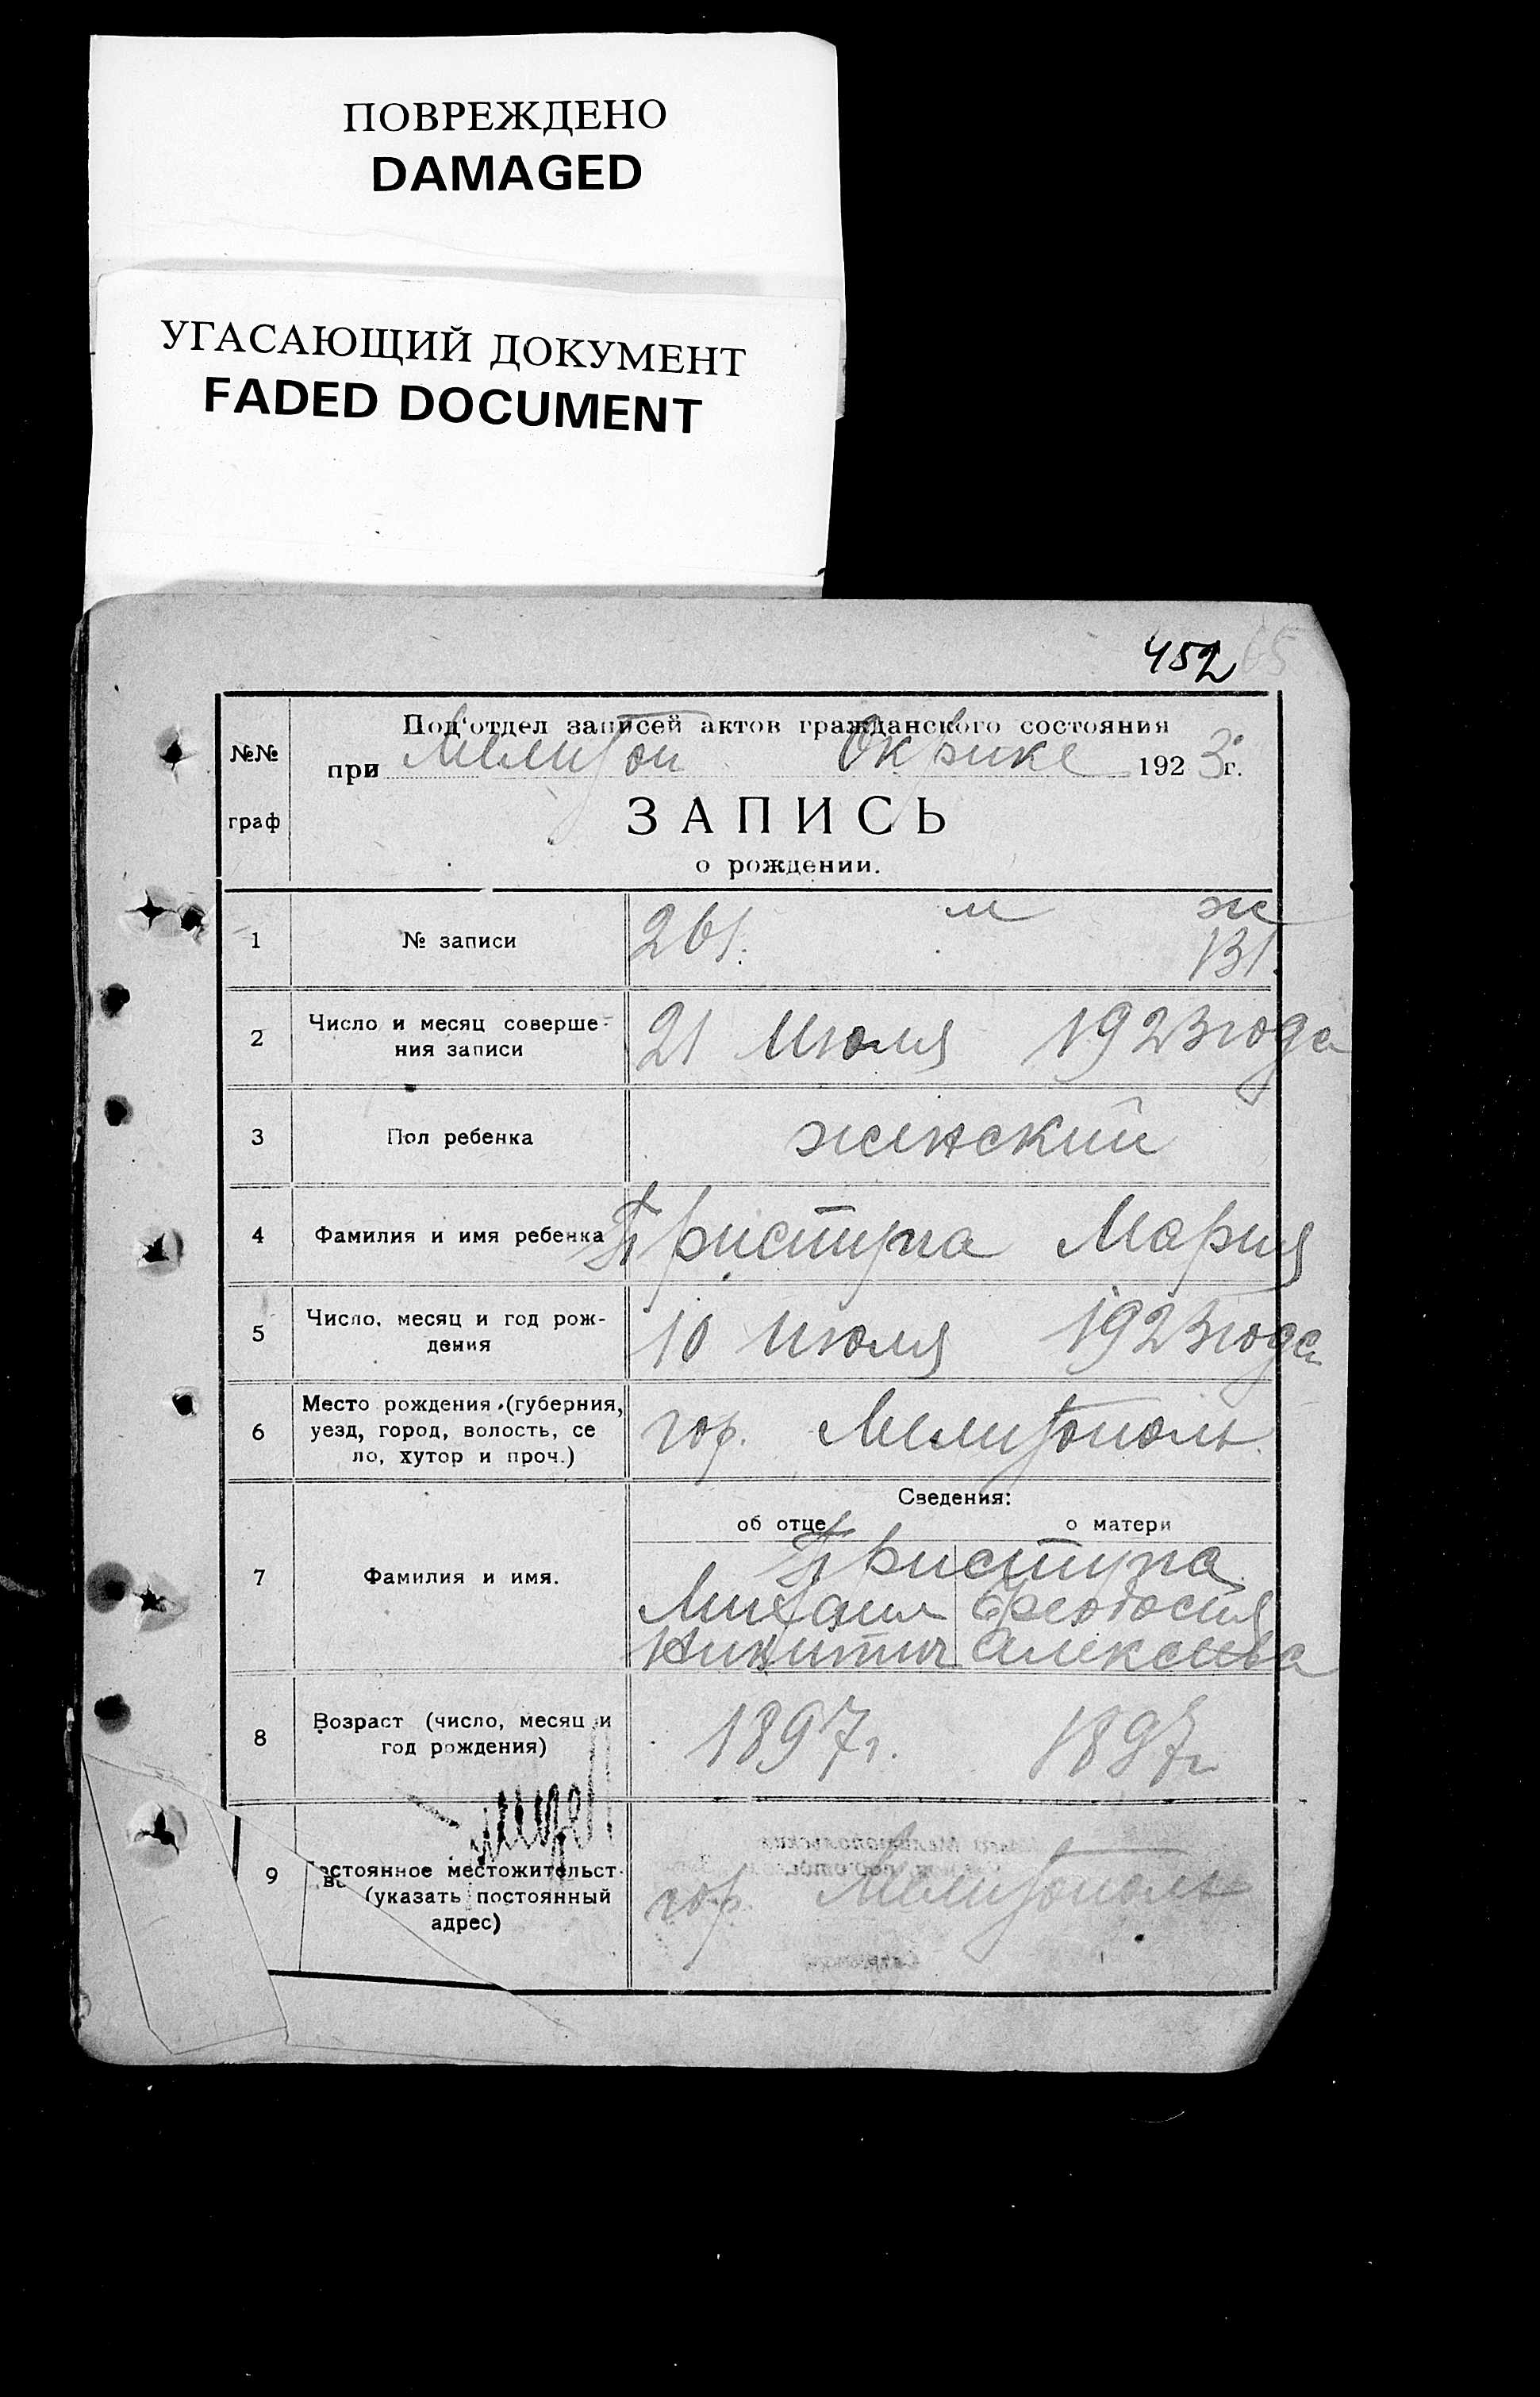 ПОВРЕЖДЕНО
DAMAGED
УГАСАЮЩИЙ ДОКУМЕНТ
FADED DOCUMENT
452 65
№№
граф
Под'отдел записей актов гражданского состояния
при Мелитоп Окрике 1923 г.
ЗАПИСЬ
о рождении.
м ж
1 № записи 261. 131.
2 Число и месяц соверше-
ния записи
21 Июля 1923 года
3 Пол ребенка женский
4 Фамилия и имя ребенка Приступа Мария
5 Число, месяц и год рож-
дения
10 Июля 1923 года
6 Место рождения (губерния,
уезд, город, волость, се
ло, хутор и проч.)
гор. Мелитополь
Сведения:
об отце о матери
7 Фамилия и имя. Приступа
Михаил Феодосия
Никитич Алексеева
8 Возраст (число, месяц и
год рождения)
1897 г. 1897 г
9 Постоянное местожительст-
во (указать постоянный
адрес)
гор. Мелитополь